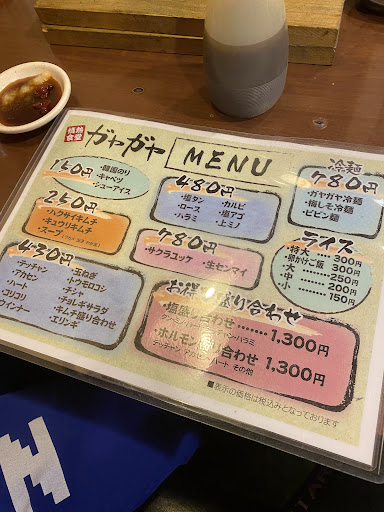 情熱
食堂
ガヤガヤ
MENU
150円
・韓国のり
・キャベツ
・シューアイス
250円
・ハクサイキムチ
・キュウリキムチ
・スープ
430円
・テッチャン
・アカセン
・ハート
・コリコリ
・ウインナー
・玉ねぎ
・トウモロコシ
・チヂミ
・チョレギサラダ
・キムチ盛り合わせ
・エリンギ
480円
・塩タン
・ロース
・ハラミ
・カルビ
・塩アゴ
・上ミノ
780円
・サクラユッケ
・生センマイ
冷麺
780円
・ガヤガヤ冷麺
・梅しそ冷麺
・ビビン麺
ライス
・特大 300円
・卵かけご飯 300円
・大 250円
・中 200円
・小 150円
お得 盛り合わせ
・塩盛り合わせ ……… 1,300円
・ホルモン盛り合わせ 1,300円
テッチャン アカセン ハート その他
■表示の価格は税込みとなっております